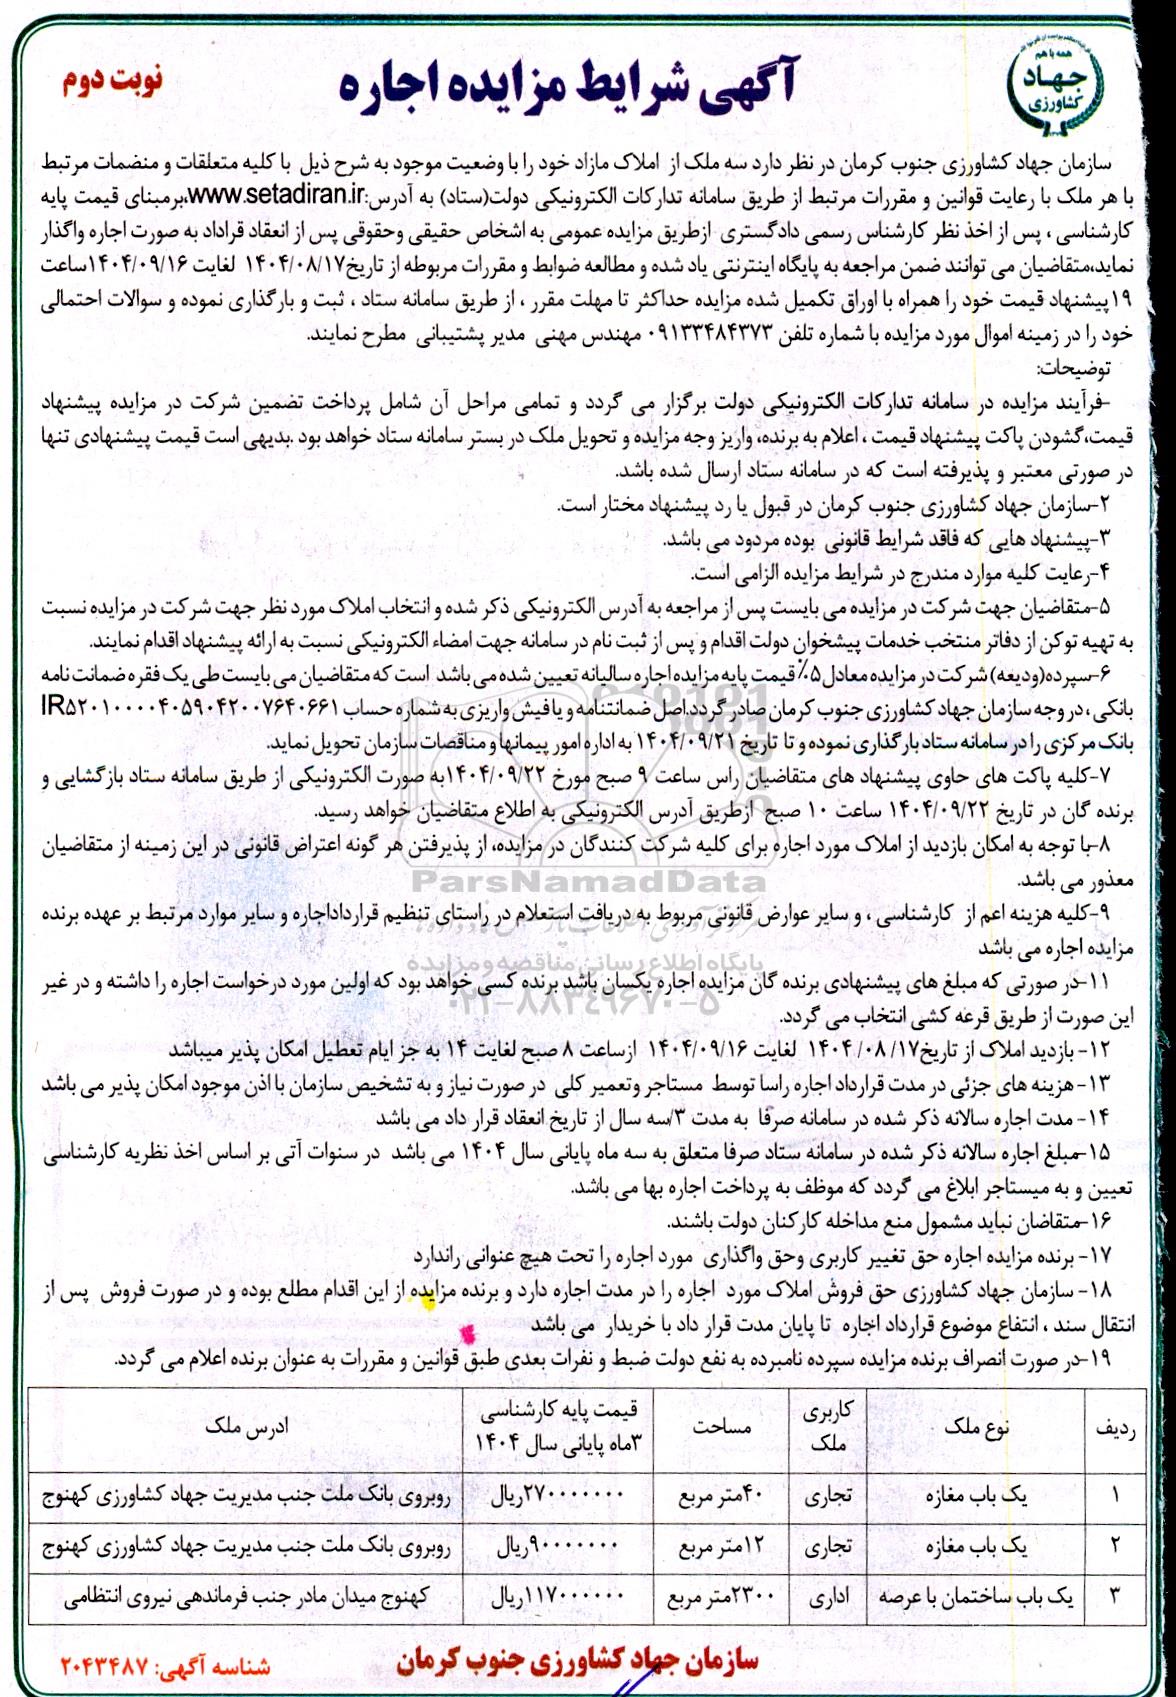 همه با هم
جهاد
کشاورزی
آگهی شرایط مزایده اجاره
نوبت دوم
سازمان جهاد کشاورزی جنوب کرمان در نظر دارد سه ملک از املاک مازاد خود را با وضعیت موجود به شرح ذیل با کلیه متعلقات و منضمات مرتبط
با هر ملک با رعایت قوانین و مقررات مرتبط از طریق سامانه تدارکات الکترونیکی دولت(ستاد) به آدرس:www.setadiran.ir،برمبنای قیمت پایه
کارشناسی ، پس از اخذ نظر کارشناس رسمی دادگستری ازطریق مزایده عمومی به اشخاص حقیقی وحقوقی پس از انعقاد قراداد به صورت اجاره واگذار
نماید،متقاضیان می توانند ضمن مراجعه به پایگاه اینترنتی یاد شده و مطالعه ضوابط و مقررات مربوطه از تاریخ۱۴۰۴/۰۸/۱۷ لغایت ۱۴۰۴/۰۹/۱۶ساعت
۱۹پیشنهاد قیمت خود را همراه با اوراق تکمیل شده مزایده حداکثر تا مهلت مقرر ، از طریق سامانه ستاد ، ثبت و بارگذاری نموده و سوالات احتمالی
خود را در زمینه اموال مورد مزایده با شماره تلفن ۰۹۱۳۳۴۸۴۳۷۳ مهندس مهنی مدیر پشتیبانی مطرح نمایند.
توضیحات:
-فرآیند مزایده در سامانه تدارکات الکترونیکی دولت برگزار می گردد و تمامی مراحل آن شامل پرداخت تضمین شرکت در مزایده پیشنهاد
قیمت،گشودن پاکت پیشنهاد قیمت ، اعلام به برنده، واریز وجه مزایده و تحویل ملک در بستر سامانه ستاد خواهد بود .بدیهی است قیمت پیشنهادی تنها
در صورتی معتبر و پذیرفته است که در سامانه ستاد ارسال شده باشد.
۲-سازمان جهاد کشاورزی جنوب کرمان در قبول یا رد پیشنهاد مختار است.
۳-پیشنهاد هایی که فاقد شرایط قانونی بوده مردود می باشد.
۴-رعایت کلیه موارد مندرج در شرایط مزایده الزامی است.
۵-متقاضیان جهت شرکت در مزایده می بایست پس از مراجعه به آدرس الکترونیکی ذکر شده و انتخاب املاک مورد نظر جهت شرکت در مزایده نسبت
به تهیه توکن از دفاتر منتخب خدمات پیشخوان دولت اقدام و پس از ثبت نام در سامانه جهت امضاء الکترونیکی نسبت به ارائه پیشنهاد اقدام نمایند.
۶-سپرده(ودیعه) شرکت در مزایده معادل ۵٪ قیمت پایه مزایده اجاره سالیانه تعیین شده می باشد است که متقاضیان می بایست طی یک فقره ضمانت نامه
بانکی ، در وجه سازمان جهاد کشاورزی جنوب کرمان صادر گردد.اصل ضمانتنامه و یا فیش واریزی به شماره حساب IR۵۲۰۱۰۰۰۰۴۰۵۹۰۴۲۰۰۷۶۴۰۶۶۱
بانک مرکزی را در سامانه ستاد بارگذاری نموده و تا تاریخ ۱۴۰۴/۰۹/۲۱ به اداره امور پیمانها و مناقصات سازمان تحویل نماید.
۷-کلیه پاکت های حاوی پیشنهاد های متقاضیان راس ساعت ۹ صبح مورخ ۱۴۰۴/۰۹/۲۲به صورت الکترونیکی از طریق سامانه ستاد بازگشایی و
برنده گان در تاریخ ۱۴۰۴/۰۹/۲۲ ساعت ۱۰ صبح ازطریق آدرس الکترونیکی به اطلاع متقاضیان خواهد رسید.
۸-با توجه به امکان بازدید از املاک مورد اجاره برای کلیه شرکت کنندگان در مزایده، از پذیرفتن هر گونه اعتراض قانونی در این زمینه از متقاضیان
معذور می باشد.
ParsNamadData
۹-کلیه هزینه اعم از کارشناسی ، و سایر عوارض قانونی مربوط به دریافت استعلام در راستای تنظیم قرارداداجاره و سایر موارد مرتبط بر عهده برنده
مزایده اجاره می باشد
پایگاه اطلاع رسانی مناقصه و مزایده
۱۱-در صورتی که مبلغ های پیشنهادی برنده گان مزایده اجاره یکسان باشد برنده کسی خواهد بود که اولین مورد درخواست اجاره را داشته و در غیر
این صورت از طریق قرعه کشی انتخاب می گردد.
۰۲۱-۸۸۳۴۹۶۷۰-۵
۱۲- بازدید املاک از تاریخ۱۷/ ۰۸/ ۱۴۰۴ لغایت ۱۴۰۴/۰۹/۱۶ ازساعت ۸ صبح لغایت ۱۴ به جز ایام تعطیل امکان پذیر میباشد
۱۳- هزینه های جزئی در مدت قرارداد اجاره راسا توسط مستاجر وتعمیر کلی در صورت نیاز و به تشخیص سازمان با اذن موجود امکان پذیر می باشد
۱۴- مدت اجاره سالانه ذکر شده در سامانه صرفا به مدت ۳/سه سال از تاریخ انعقاد قرار داد می باشد
۱۵-مبلغ اجاره سالانه ذکر شده در سامانه ستاد صرفا متعلق به سه ماه پایانی سال ۱۴۰۴ می باشد در سنوات آتی بر اساس اخذ نظریه کارشناسی
تعیین و به میستاجر ابلاغ می گردد که موظف به پرداخت اجاره بها می باشد.
۱۶-متقاضان نباید مشمول منع مداخله کارکنان دولت باشند.
۱۷- برنده مزایده اجاره حق تغییر کاربری وحق واگذاری مورد اجاره را تحت هیچ عنوانی راندارد
۱۸- سازمان جهاد کشاورزی حق فروش املاک مورد اجاره را در مدت اجاره دارد و برنده مزایده از این اقدام مطلع بوده و در صورت فروش پس از
انتقال سند ، انتفاع موضوع قرارداد اجاره تا پایان مدت قرار داد با خریدار می باشد
۱۹-در صورت انصراف برنده مزایده سپرده نامبرده به نفع دولت ضبط و نفرات بعدی طبق قوانین و مقررات به عنوان برنده اعلام می گردد.
ردیف نوع ملک کاربری ملک مساحت قیمت پایه کارشناسی ۳ماه پایانی سال ۱۴۰۴ ادرس ملک
۱ یک باب مغازه تجاری ۴۰متر مربع ۲۷۰۰۰۰۰۰۰ریال روبروی بانک ملت جنب مدیریت جهاد کشاورزی کهنوج
۲ یک باب مغازه تجاری ۱۲متر مربع ۹۰۰۰۰۰۰۰ریال روبروی بانک ملت جنب مدیریت جهاد کشاورزی کهنوج
۳ یک باب ساختمان با عرصه اداری ۲۳۰۰متر مربع ۱۱۷۰۰۰۰۰۰ریال کهنوج میدان مادر جنب فرماندهی نیروی انتظامی
سازمان جهاد کشاورزی جنوب کرمان
شناسه آگهی: ۲۰۴۳۴۸۷